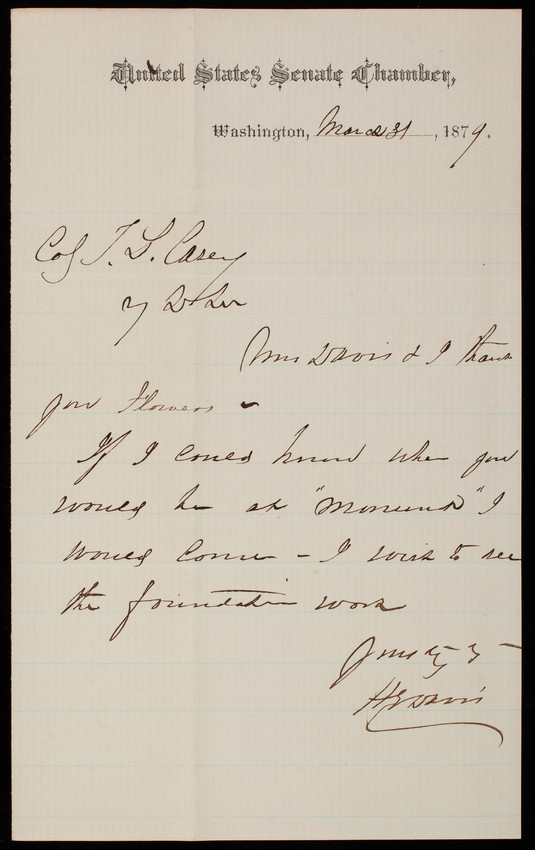 United States Senate Chamber,
Washington, March 31, 1879.
Col T. L. Casey
My Dr Sir
Mrs Davis & I thank
you Flowers -
If I could know when you
would be at "Monument" I
would come - I wish to see
the foundation work
Yours
H G Davis